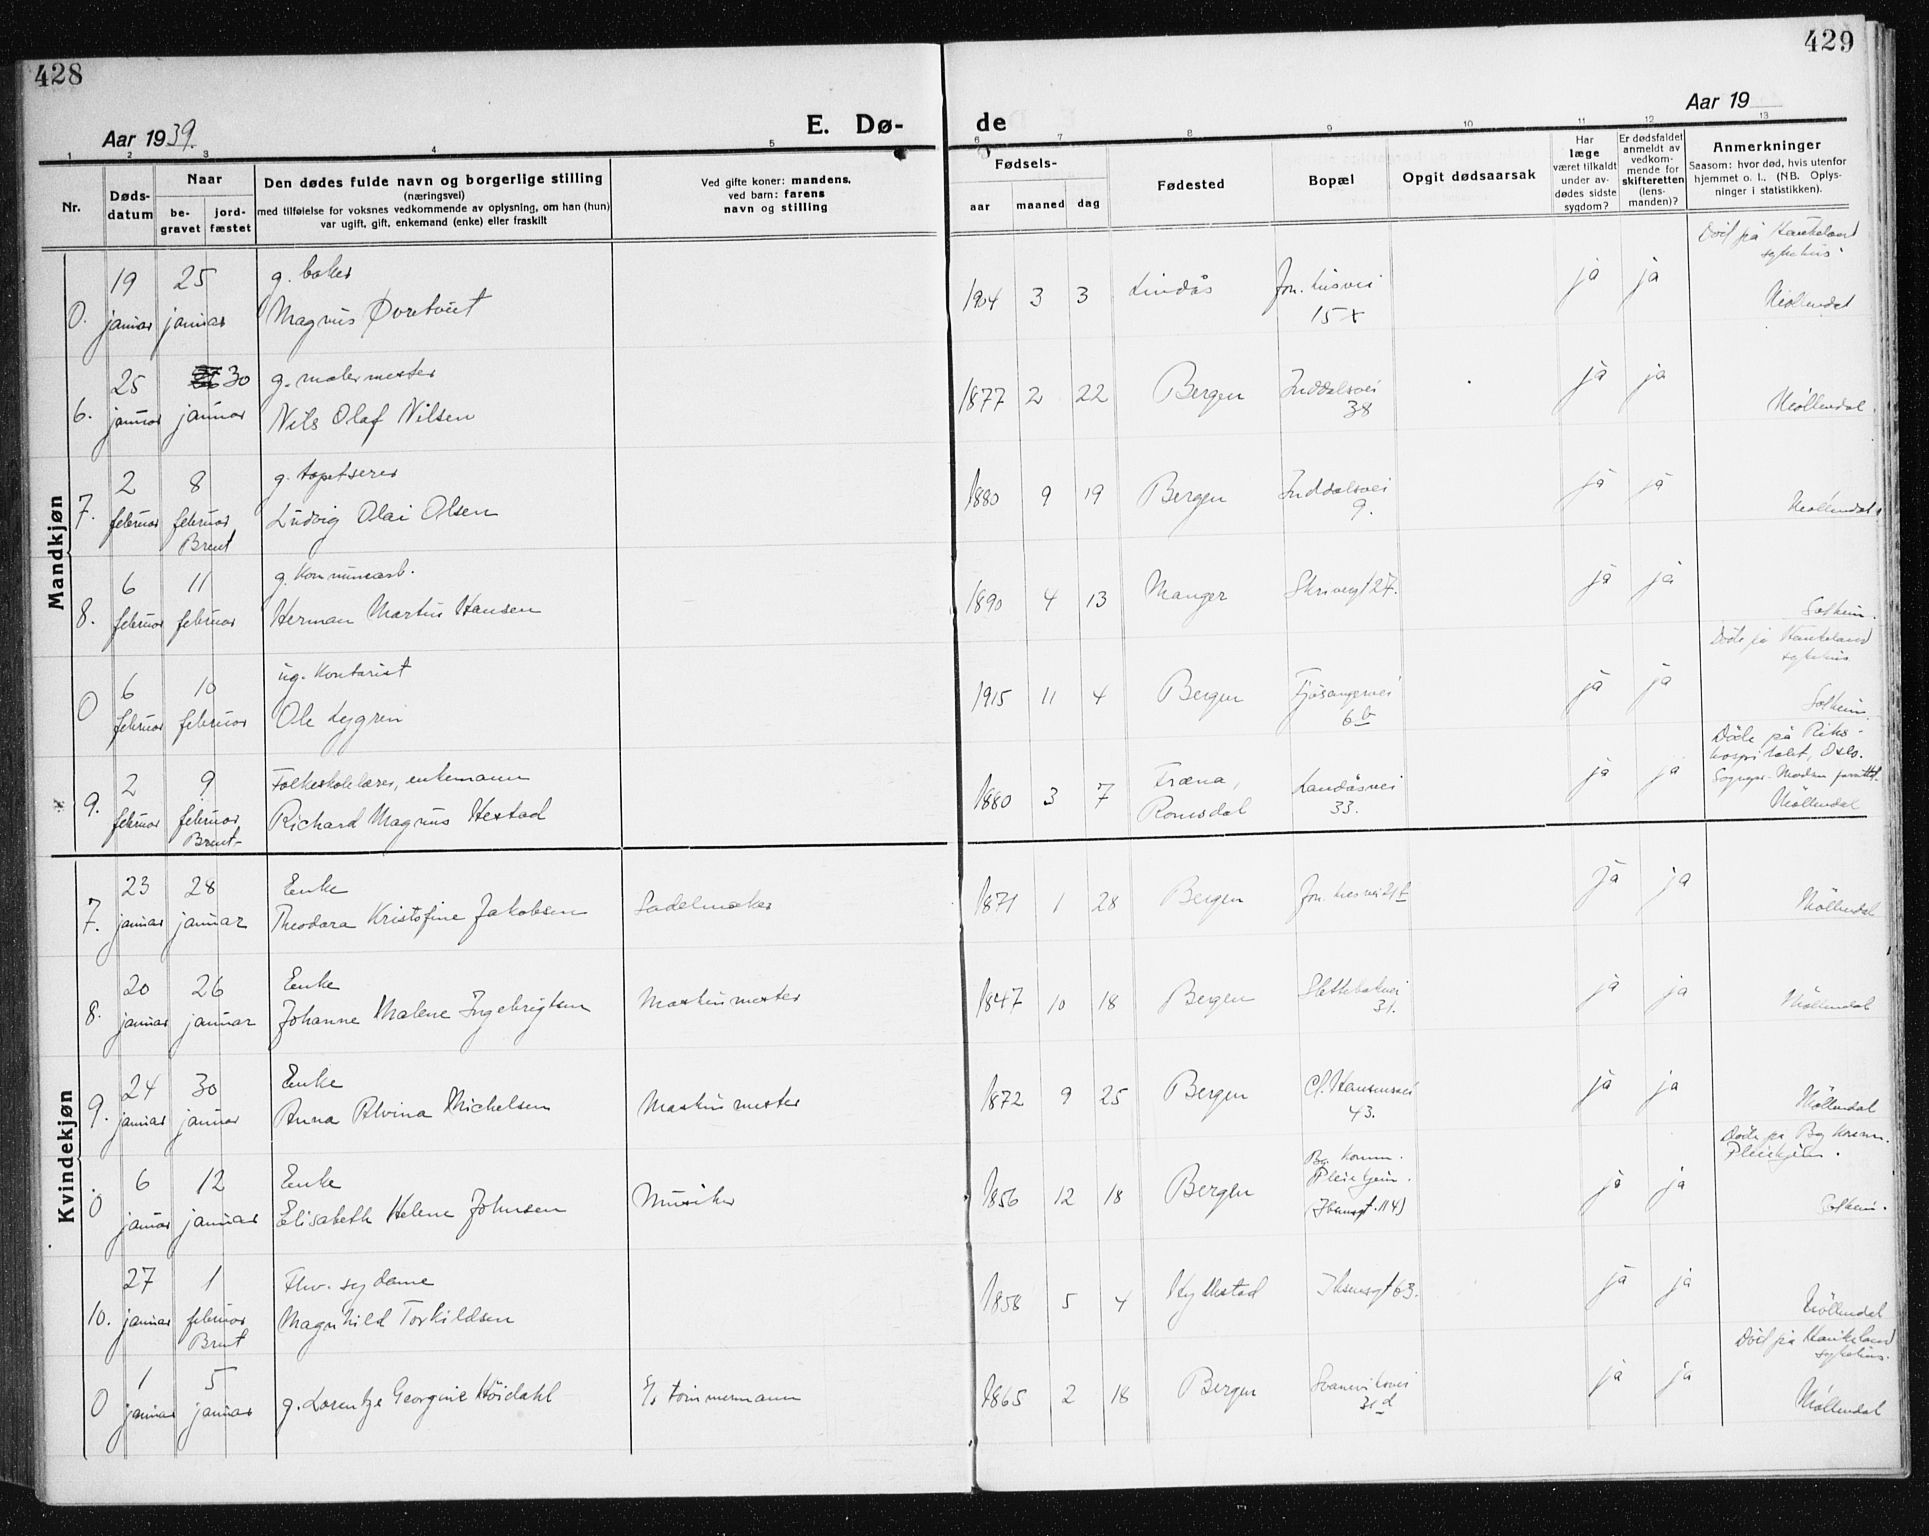 428
429
Aar 1939.
E. Dø-
de
Aar 19
1 2 3 4 5 6 7 8 9 10 11 12 13
Nr.
Døds-
datum
Naar
be-
gravet
jord-
fæstet
Den dødes fulde navn og borgerlige stilling
(næringsvei)
med tilføielse for voksnes vedkommende av oplysning, om han (hun)
var ugift, gift, enkemand (enke) eller fraskilt
Ved gifte koner: mandens,
ved barn: farens
navn og stilling
Fødsels-
aar maaned dag
Fødested
Bopæl
Opgit dødsaarsak
Har
læge
været tilkaldt
under av-
dødes sidste
sygdom?
Er dødsfaldet
anmeldt av
vedkom-
mende for
skifteretten
(lens-
manden)?
Anmerkninger
Saasom: hvor død, hvis utenfor
hjemmet o. l., (NB. Oplys-
ninger i statistikken).
Mandkjøn
Død på Haukeland
sykehus
19 25 g. baker
0. januar januar Magnus Øvretveit 1904 3 3 Lindås
15 ja ja Møllendal
25 30 g. malermester
6. januar januar Nils Olaf Nilsen 1877 2 22 Bergen Inddalsvei
38 ja ja Møllendal.
2 8 g. tapetserer
7. februar februar Ludvig Olai Olsen 1880 9 19 Bergen Inddalsvei
Brent 9. ja ja Møllendal.
6 11 g. Kommunearb.
8. februar februar Herman Martin Hansen 1890 4 13 Manger Skriverst 27. ja ja Solheim.
Døde på Haukeland
sykehus
6 10 ug. Kontorist
0 februar februar Ole Lygren 1915 11 4 Bergen Fjøsangervei
6b ja ja Solheim.
Døde på Riks-
hospitalet, Oslo.
2 9 Folkeskolelærer, enkemann
9. februar februar Richard Magnus Hestad 1880 3 7 Fræna,
Romsdal Landåsvei
33. ja ja
Brent Møllendal
Kvindekjøn
23 28 Enke
7. januar januar Theodora Kristofine Jakobsen Sadelmaker 1871 1 28 Bergen ja ja Møllendal
20 26 Enke
8. januar januar Johanne Malene Ingebrigtsen Maskinmester 1847 10 18 Bergen Slettebakvei
31. ja ja Møllendal
24 30 Enke
9. januar januar Anna Alvina Michelsen Maskinmester 1872 9 25 Bergen Cl. Hansensvei
43. ja ja Møllendal
Døde på Bg Komm.
Pleiehjem.
6 12 Enke
0 januar januar Elisabeth Helene Johnsen Musiker 1856 12 18 Bergen Bg. Komm.
Pleiehjem.
(Ibsensgt. 114) ja ja Solheim.
27 1 Fhv. sydame
10. januar februar Magnhild Torkildsen 1858 5 4 Hyllestad Ibsensgt 63. ja ja
Brent Møllendal
Død på Haukeland
sykehus.
1 5
0 januar januar g. Lorentze Georgine Høidahl tømmermann 1865 2 18 Bergen Svaneviksvei
31d ja ja Møllendal